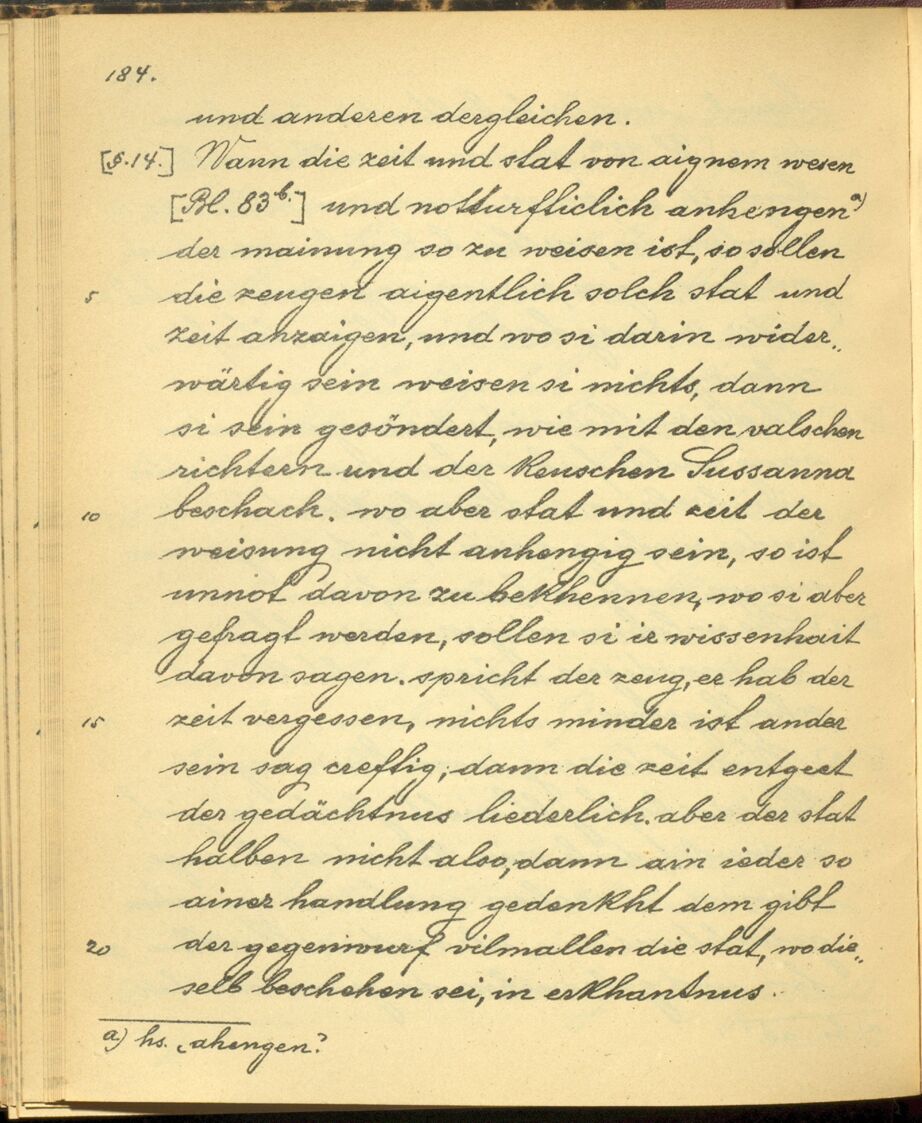 184.
und anderen dergleichen.
[§.14.] Wann die zeit und stat von aignem wesen
[Bl. 83b.] und notturfticlich anhengen a)
der mainung so zu weisen ist, so sollen
5 die zeugen aigentlich solch stat und
zeit anzaigen, und wo si darin wider„
wärtig sein weisen si nichts, dann
si sein gesöndert, wie mit den valschen
richtern und der keuschen Sussanna
10 beschach. wo aber stat und zeit der
weisung nicht anhengig sein, so ist
unnot davon zu bekhennen, wo si aber
gefragt werden, sollen si ir wissenhait
davon sagen. spricht der zeug, er hab der
15 zeit vergessen, nichts minder ist ander
sein sag creftig; dann die zeit entgeet
der gedächtnus liederlich. aber der stat
halben nicht also, dann ain ieder so
ainer handlung gedenkht dem gibt
20 der gegenwurf vilmallen die stat, wo die„
selb beschehen sei, in erkhantnus.
a) hs. „ahengen"